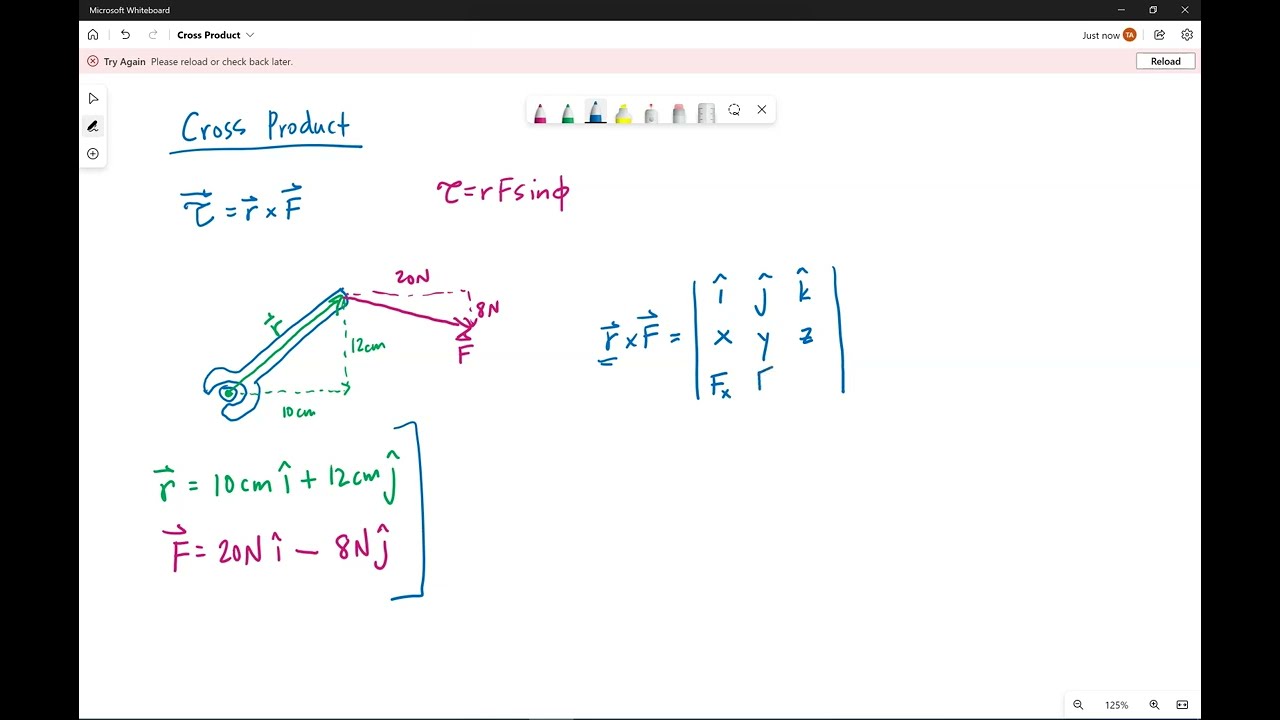 Microsoft Whiteboard
Cross Product
Just now TA
Try Again Please reload or check back later.
Reload
Cross Product
τ⃗ = r⃗ × F⃗
τ = rFsinϕ
20N
8N
r⃗
F⃗
12cm
10cm
r⃗ × F⃗ =
î ĵ k̂
x y z
Fₓ Γ
r⃗ = 10cm î + 12cm ĵ
F⃗ = 20N î − 8N ĵ
125%